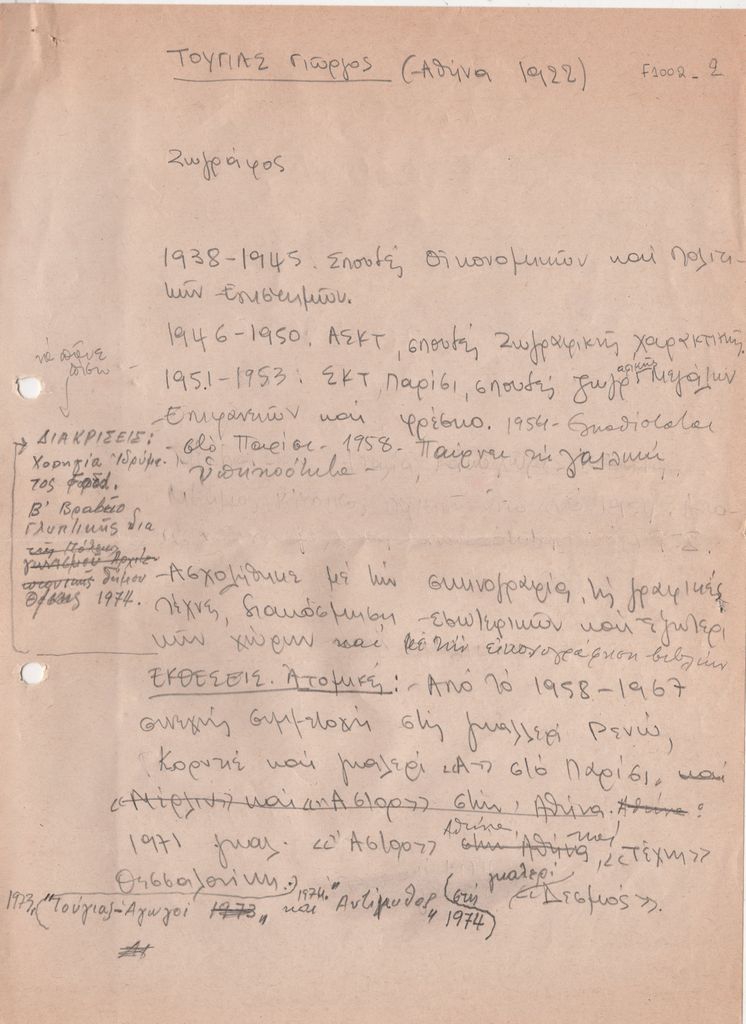 ΤΟΥΓΙΑΣ Γιώργος (Αθήνα 1922) F1002-2
Ζωγράφος
1938-1945. Σπουδές Οικονομικών και Πολιτι-
κών Επιστημών.
1946-1950: ΑΣΚΤ, σπουδές ζωγραφικής χαρακτικής
1951-1953: ΣΚΤ, Παρίσι, σπουδές ζωγραφικής Μεγάλων
Επιφανειών και φρέσκο. 1954- Εγκαθίσταται
στο Παρίσι - 1958- Παίρνει τη γαλλική
υπηκοότητα
να πάνε
πίσω
ΔΙΑΚΡΙΣΕΙΣ:
Χορηγία Ιδρύμα-
τος Φορδ.
Β' Βραβείο
Γλυπτικής δια
δήμου
1974.
-Ασχολήθηκε με την σκηνογραφία, τις γραφικές
τέχνες, διακόσμηση εσωτερικών και εξωτερι
κών χώρων και με την εικονογράφηση βιβλίων
ΕΚΘΕΣΕΙΣ. Ατομικές: -Από το 1958-1967
συνεχής συμμετοχή στις γκαλλερί Ρενώ,
Κορντιέ και γκαλερί «Α» στο Παρίσι, και
και «Αστορ» στην Αθήνα.
1971 γκαλ. «Αστορ» Αθήνα, στην Αθήνα και «Τέχνη»
Θεσσαλονίκη.
1973, "Τούγιας-Αγωγοί 1973" και 1974 "Αντίμυθος" (στη γκαλερί «Δεσμός».
1974)